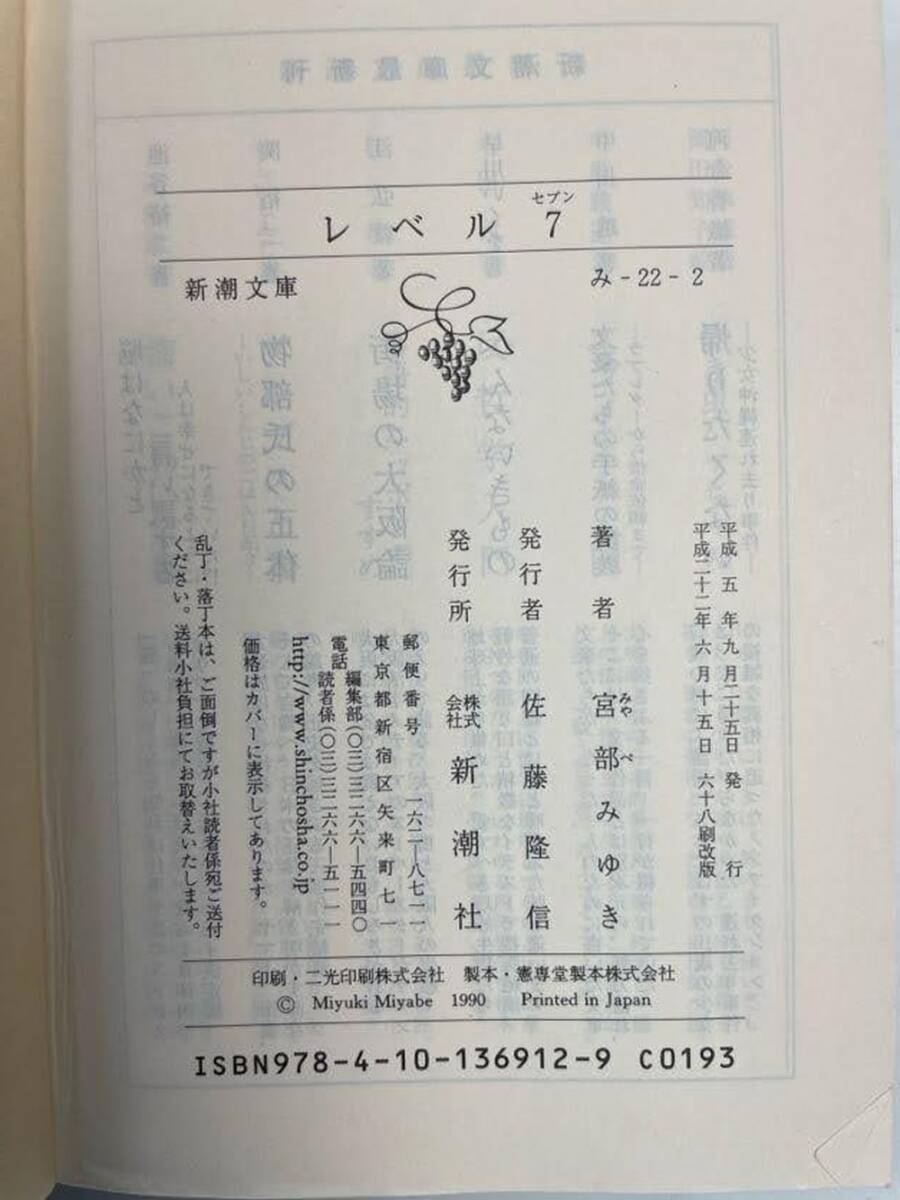 レベル7
セブン
新潮文庫
み-22-2
平成五年九月二十五日発行
平成二十二年六月十五日六十八刷改版
著者 宮部みゆき
みや べ
発行者 佐藤隆信
発行所 株式会社 新潮社
郵便番号 一六二―八七一一
東京都新宿区矢来町七一
電話 編集部(〇三)三二六六―五四四〇
読者係(〇三)三二六六―五一一一
http://www.shinchosha.co.jp
価格はカバーに表示してあります。
乱丁・落丁本は、ご面倒ですが小社読者係宛ご送付
ください。送料小社負担にてお取替えいたします。
印刷・二光印刷株式会社 製本・憲専堂製本株式会社
© Miyuki Miyabe 1990 Printed in Japan
ISBN978-4-10-136912-9 C0193